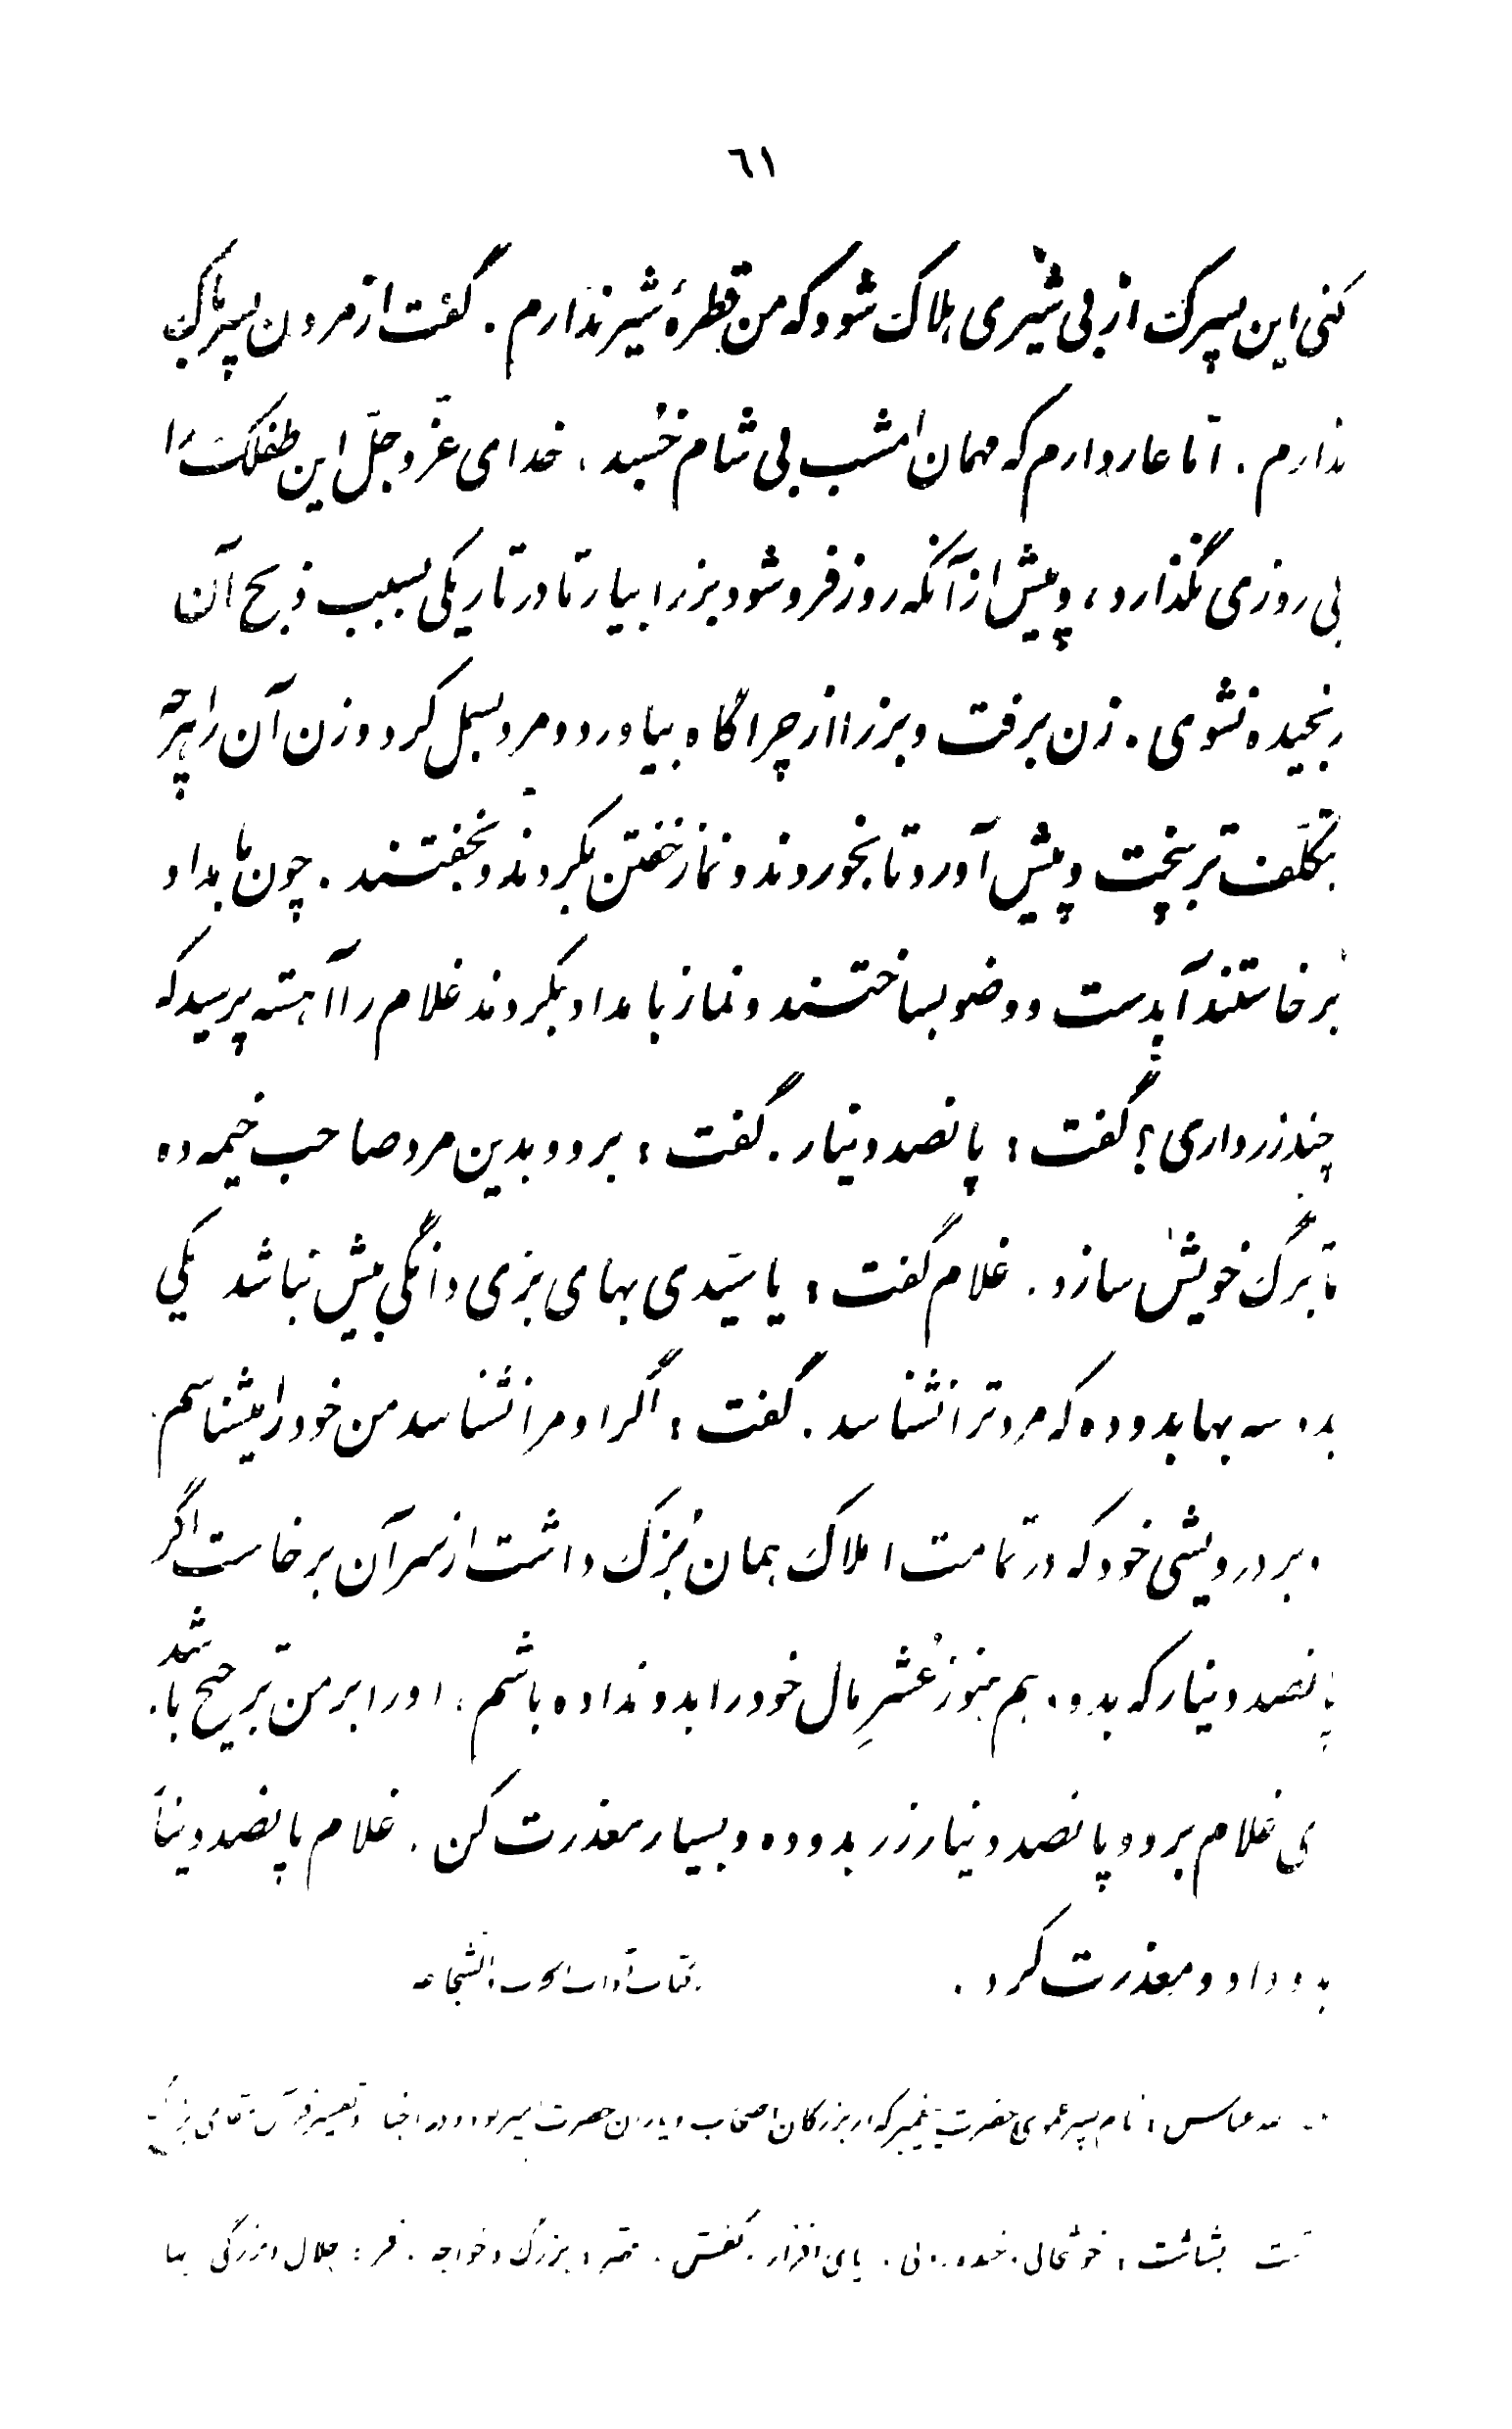 ٦١
کنی این پسرک از بی شیری هلاک شود که من قطرهٔ شیر ندارم . گفت از مردن پسر باک
ندارم . امّا عار دارم که مهمان امشب بی شام خُسبد . خدای عزّ و جلّ این طفلک را
بی روزی نگذارد ، و پیش از آنکه روز فرو شود بز را بیار تا در تاریکی بسبب ذبح آن
رنجیده نشوی . زن برفت و بز را از چراگاه بیاورد و مرد بسمل کرد و زن آن را بهرچه
بتکلّف تر بپخت و پیش آورد تا بخوردند و نماز خفتن بکردند و بخفتند . چون بامداد
برخاستند آبدست و وضو بساختند و نماز بامداد بکردند غلام را آهسته پرسید که
چند زر داری ؟ گفت : پانصد دینار . گفت : برو و بدین مرد صاحب خیمه ده
تا برگ خویش سازد . غلام گفت : یا سیّدی بهای بزی دانگی بیش نباشد یکی
بده سه بها بدو ده که مرد ترا نشناسد . گفت : اگر او مرا نشناسد من خود را بشناسم
و بر درویشی خود که در تمامت املاک همان بُزک داشت از سر آن برخاست اگر
پانصد دینار که بدو ... هم هنوز عُشرِ مال خود را بدو نداده باشم ، او را بر من ترجیح باشد
ی غلام برو و پانصد دینار زر بدو ده و بسیار معذرت کن . غلام پانصد دینا
بدو داد و معذرت کرد .
کتاب آداب الحرب و الشجاعه
عباس : نام پسر عموی حضرت پیغمبر که از بزرگان اصحاب و یاران حضرت امیر بود و در اخبار و تفسیر قرآن مقامی بزرگ
بشاشت : خوشحالی . خنده رویی . پای افزار . کفش . مهتر : بزرگ و خواجه . فر : جلال و بزرگی بها